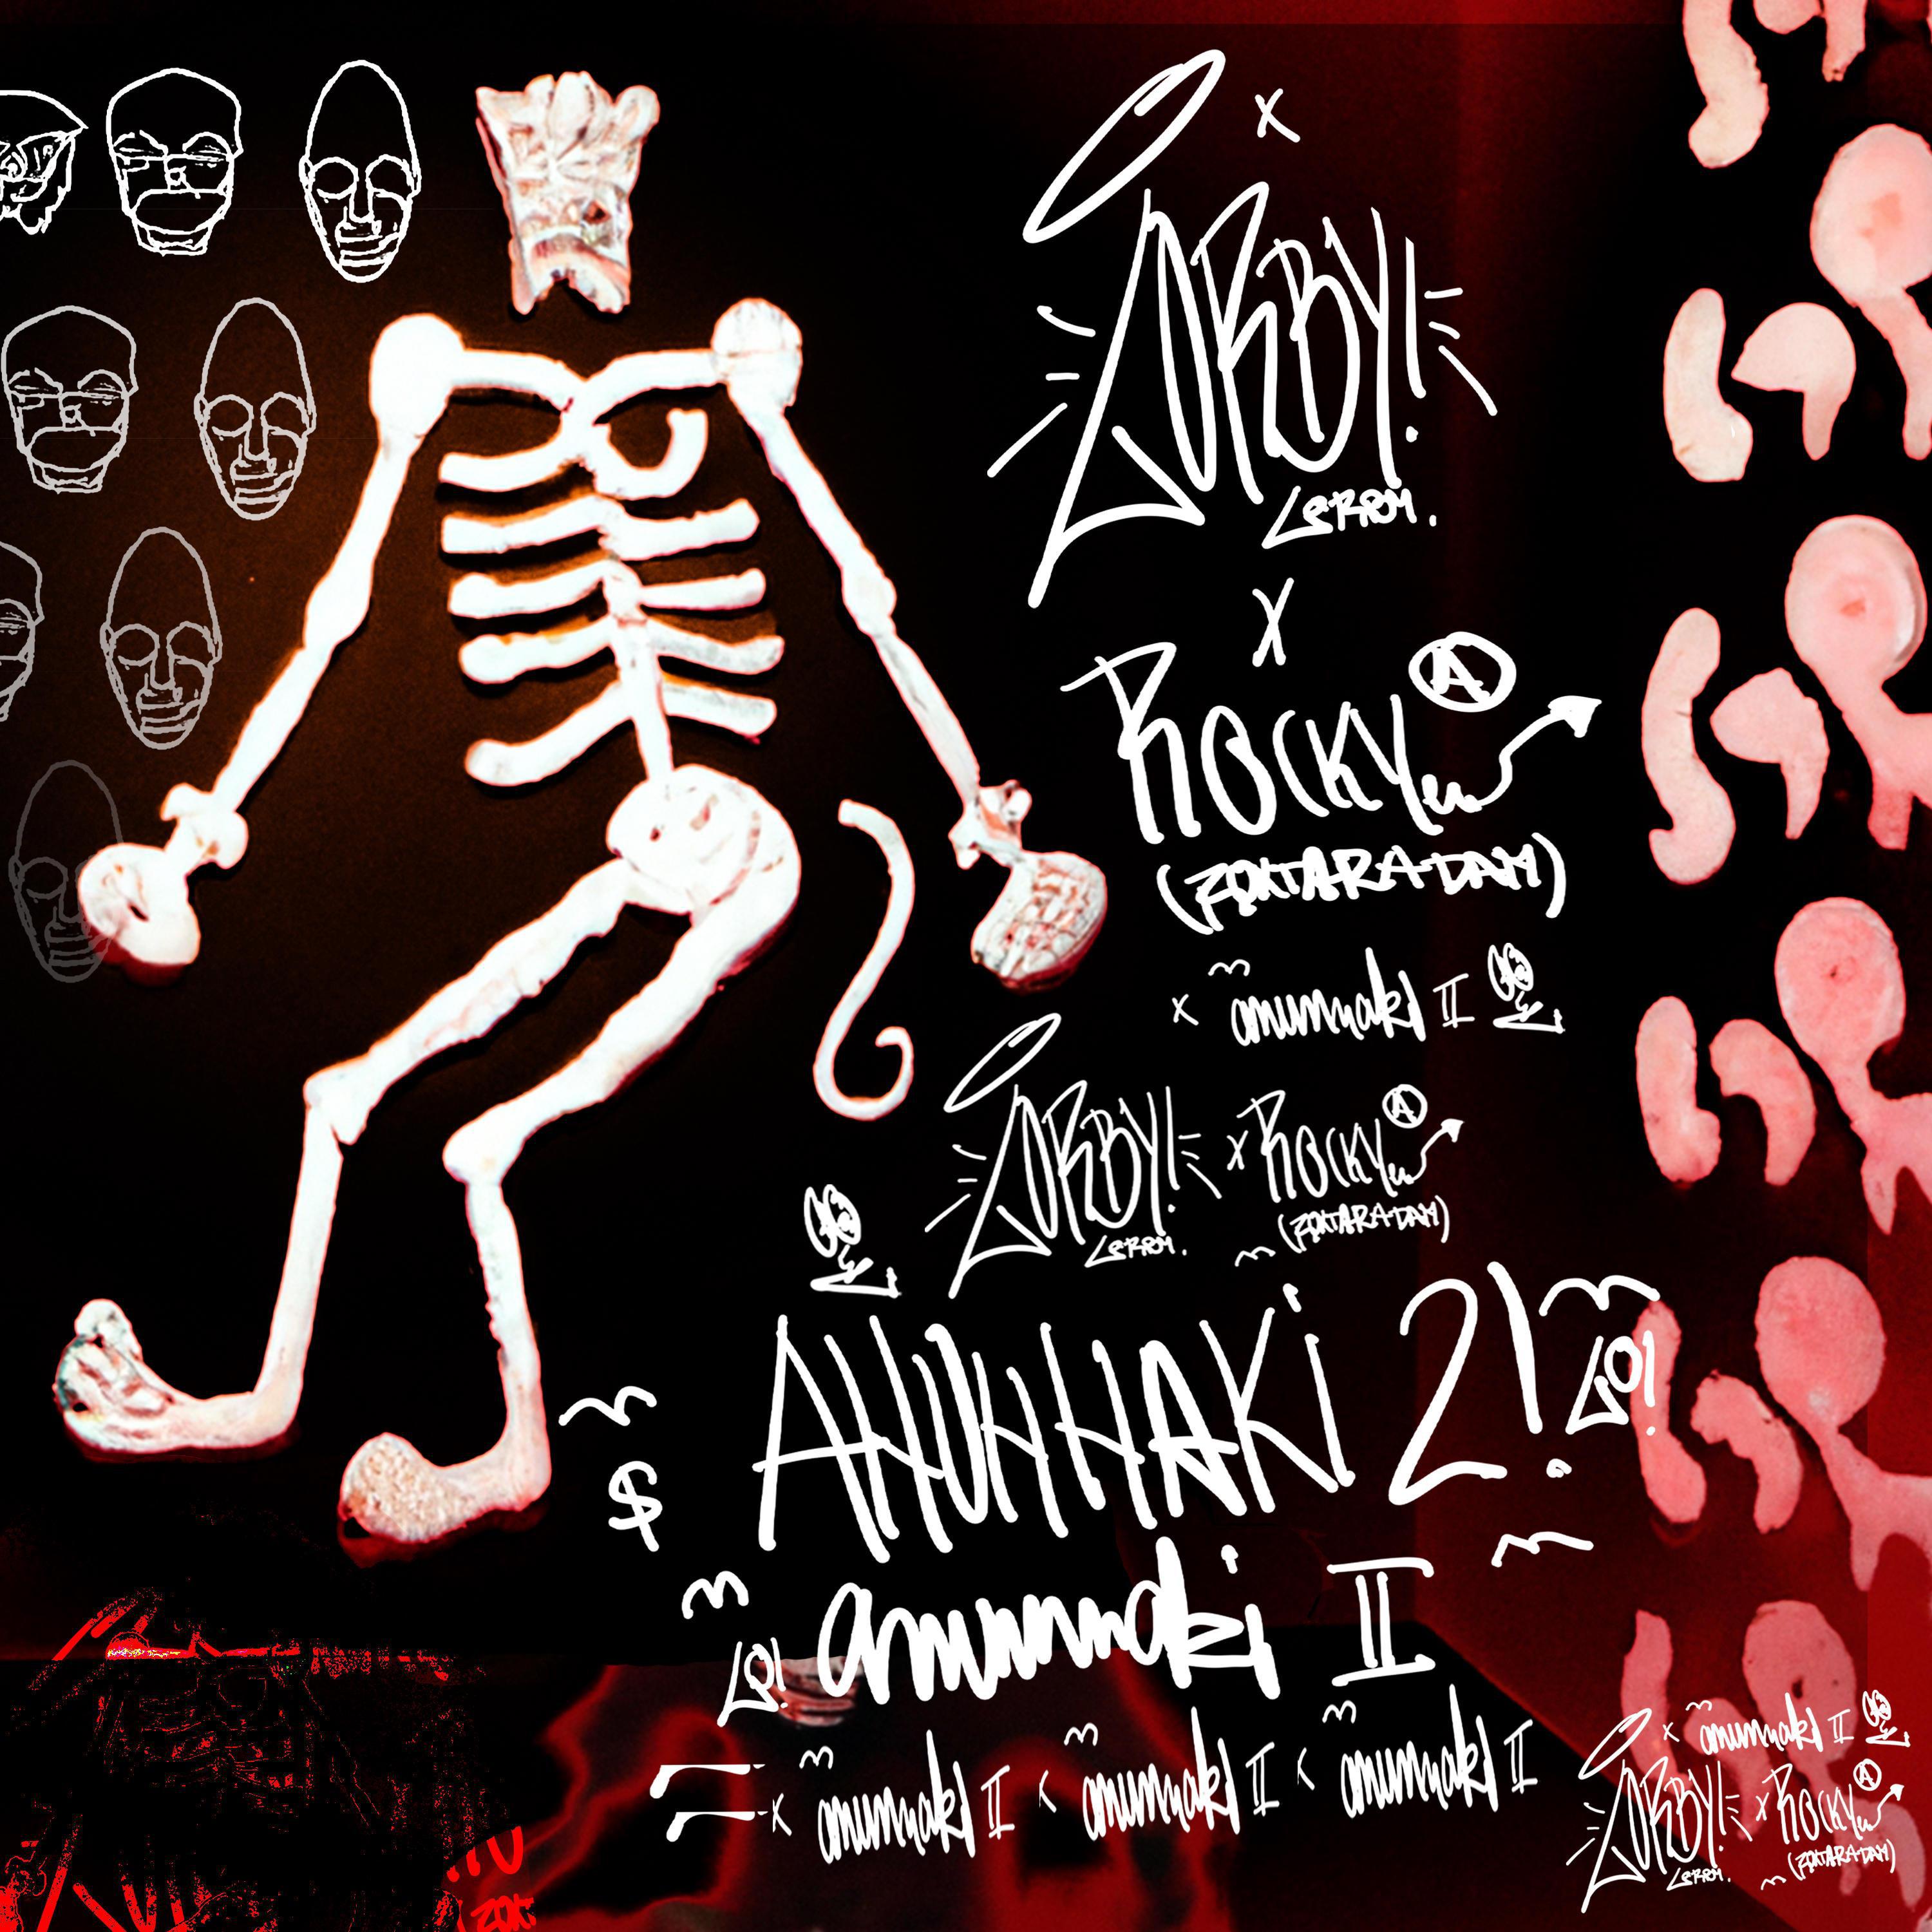 x
ZORBY!
x
ROCKY A
(ZOXTARADAM)
x anunnaki II
ZORBY! x ROCKY A
(ZOXTARADAM)
ANUNNAKI 2!
$
anunnaki II
x anunnaki II x anunnaki II x anunnaki II
x anunnaki II
ZORBY! x ROCKY A
(ZOXTARADAM)